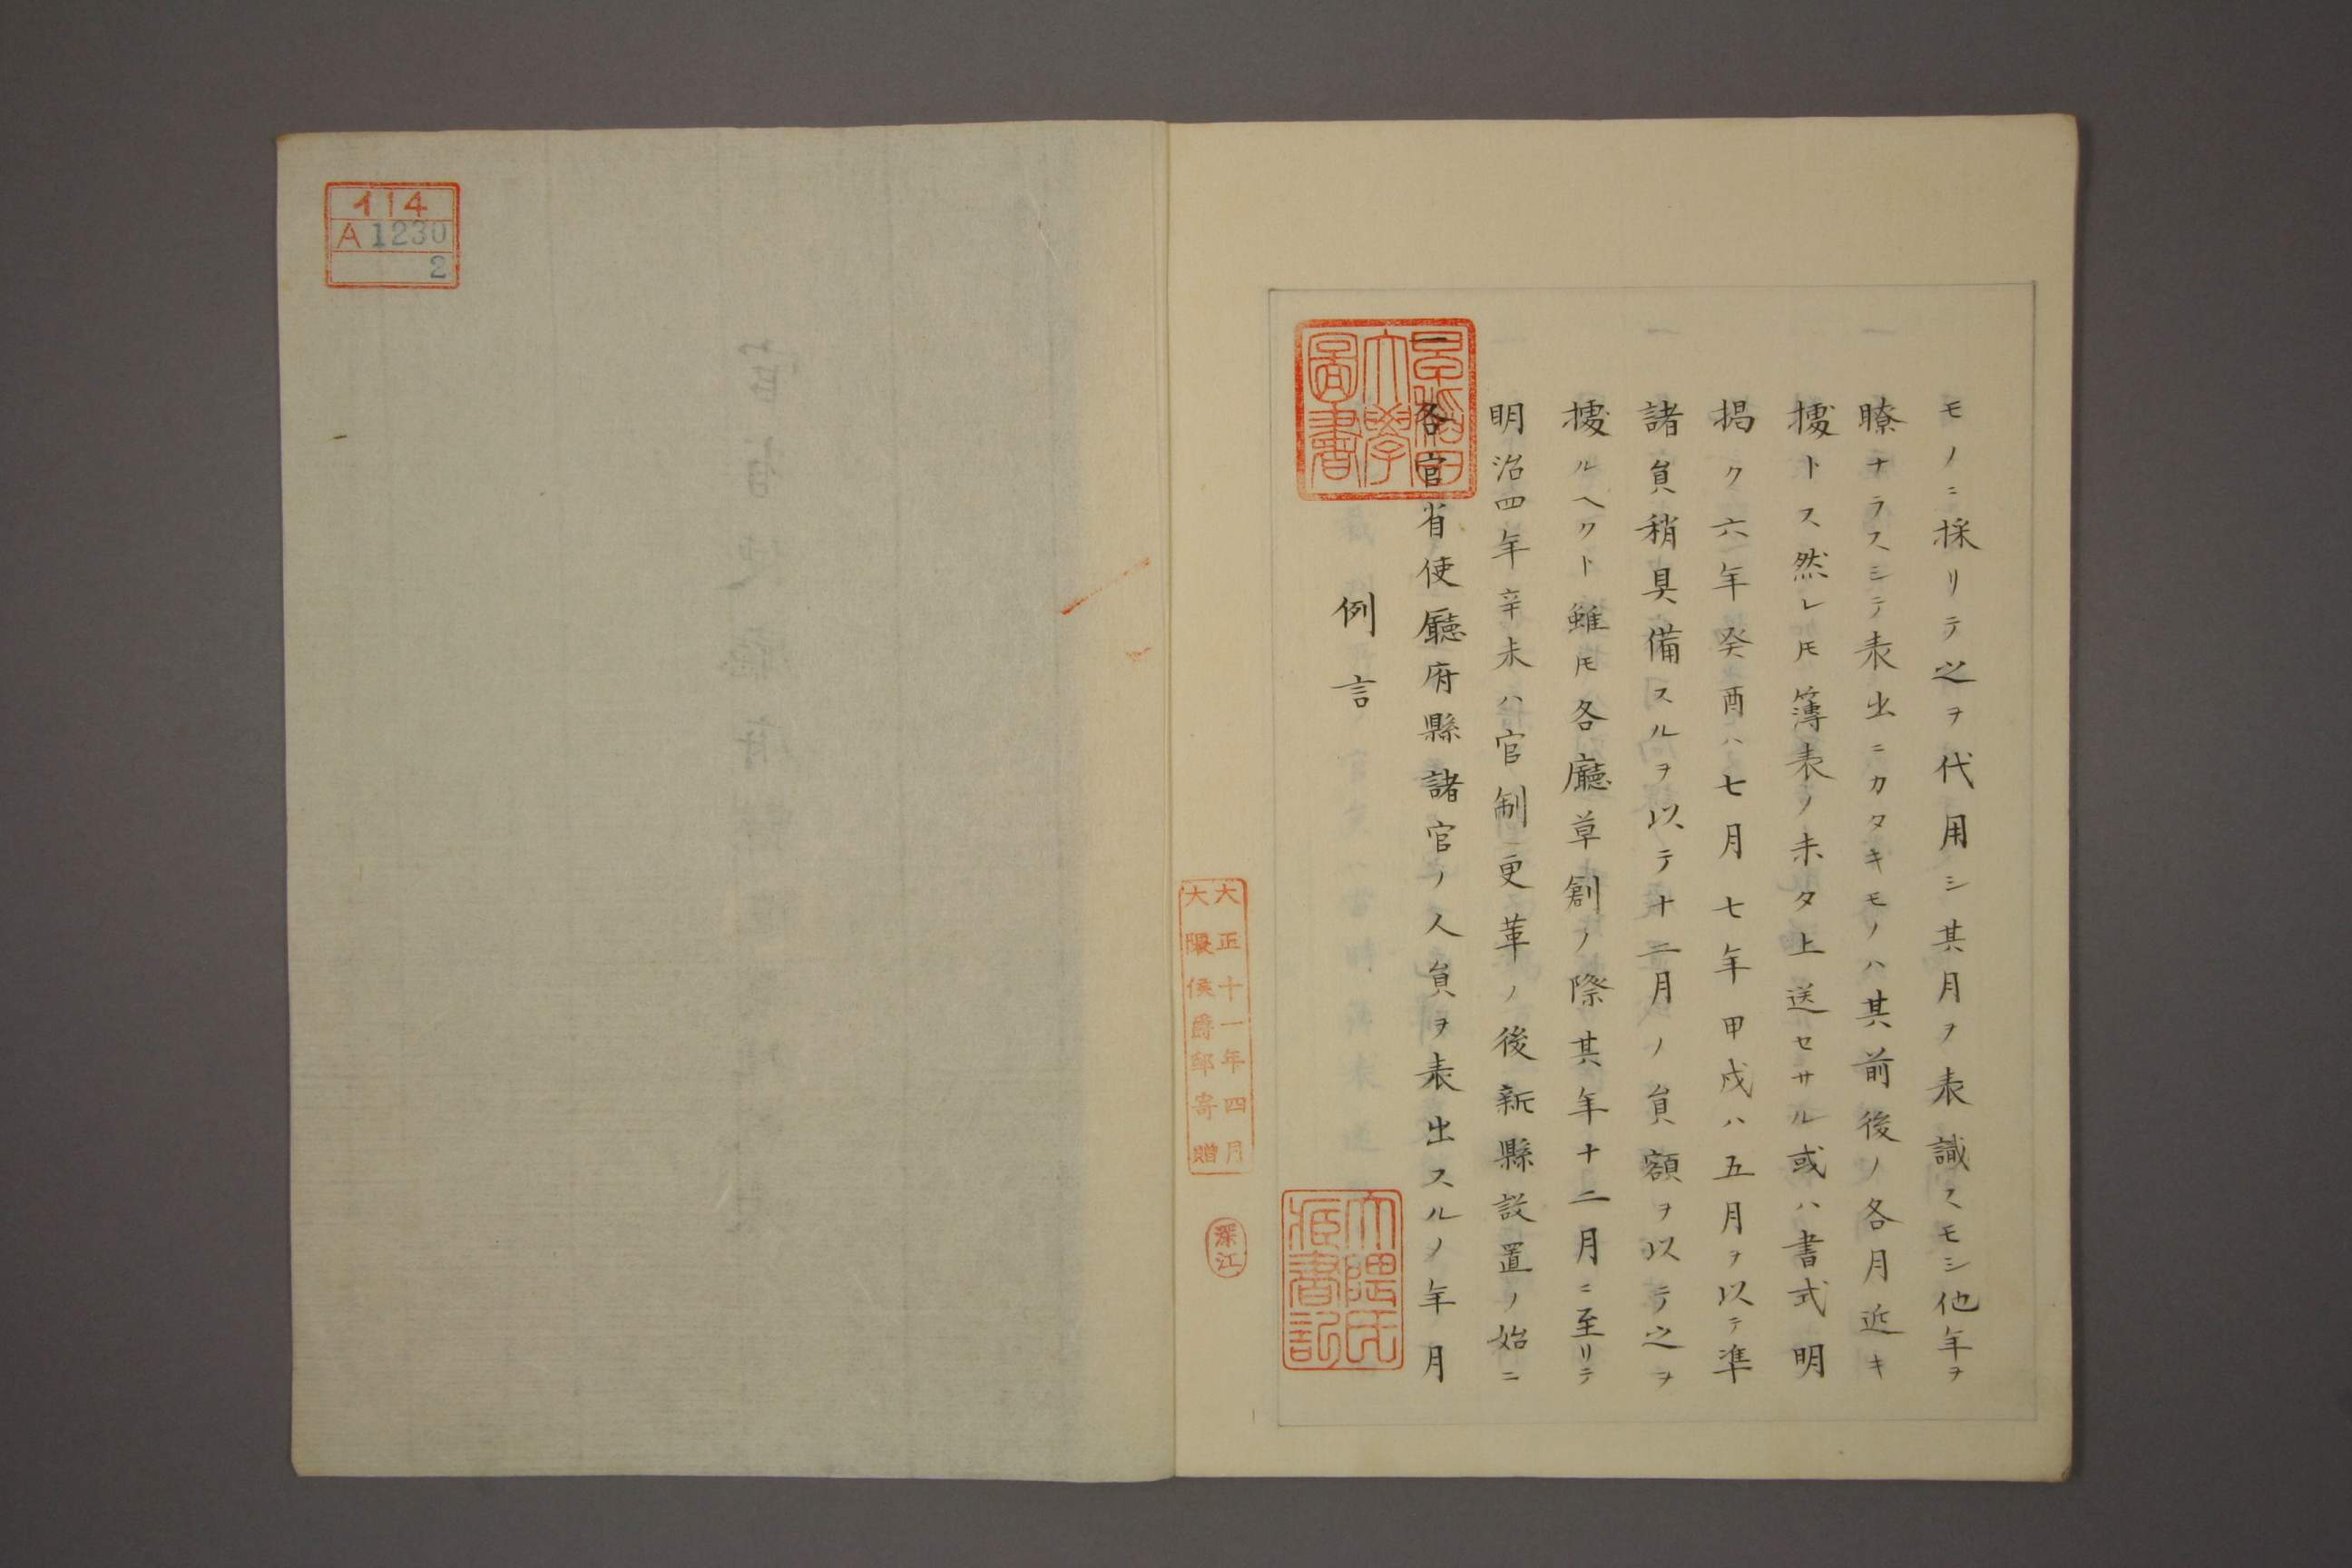 イ14
A 1230
2
大正十一年四月
大隈侯爵邸寄贈
深江
早稲田
大學
圖書
大隈氏
藏書記
例言
一各官省使廳府縣諸官ノ人員ヲ表出スルノ年月
明治四年辛未ハ官制更革ノ後新縣設置ノ始ニ
據ルヘクト雖𪜈各廳草創ノ際其年十二月ニ至リテ
諸員稍具備スルヲ以テ十二月ノ員額ヲ以テ之ヲ
掲ク六年癸酉ハ七月七年甲戌ハ五月ヲ以テ準
據トス然レ𪜈簿表ノ未タ上送セサル或ハ書式明
瞭ナラスシテ表出ニカタキモノハ其前後ノ各月近キ
モノニ採リテ之ヲ代用シ其月ヲ表識スモシ他年ヲ